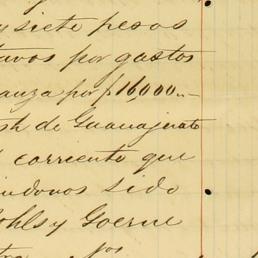 y siete pesos
tavos por gastos
anza por $16,000.—
sh de Guanajuato
corriente que
indonos sido
ohls y Goerne